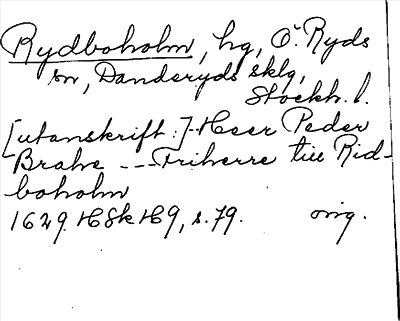 Rydboholm, hg, Ö. Ryds
sn, Danderyds sklg,
Stockh. l.
[utanskrift:] Heer Peder
Brahe --- Friherre till Rid-
boholm
1629. HSkH9, s. 79. orig.